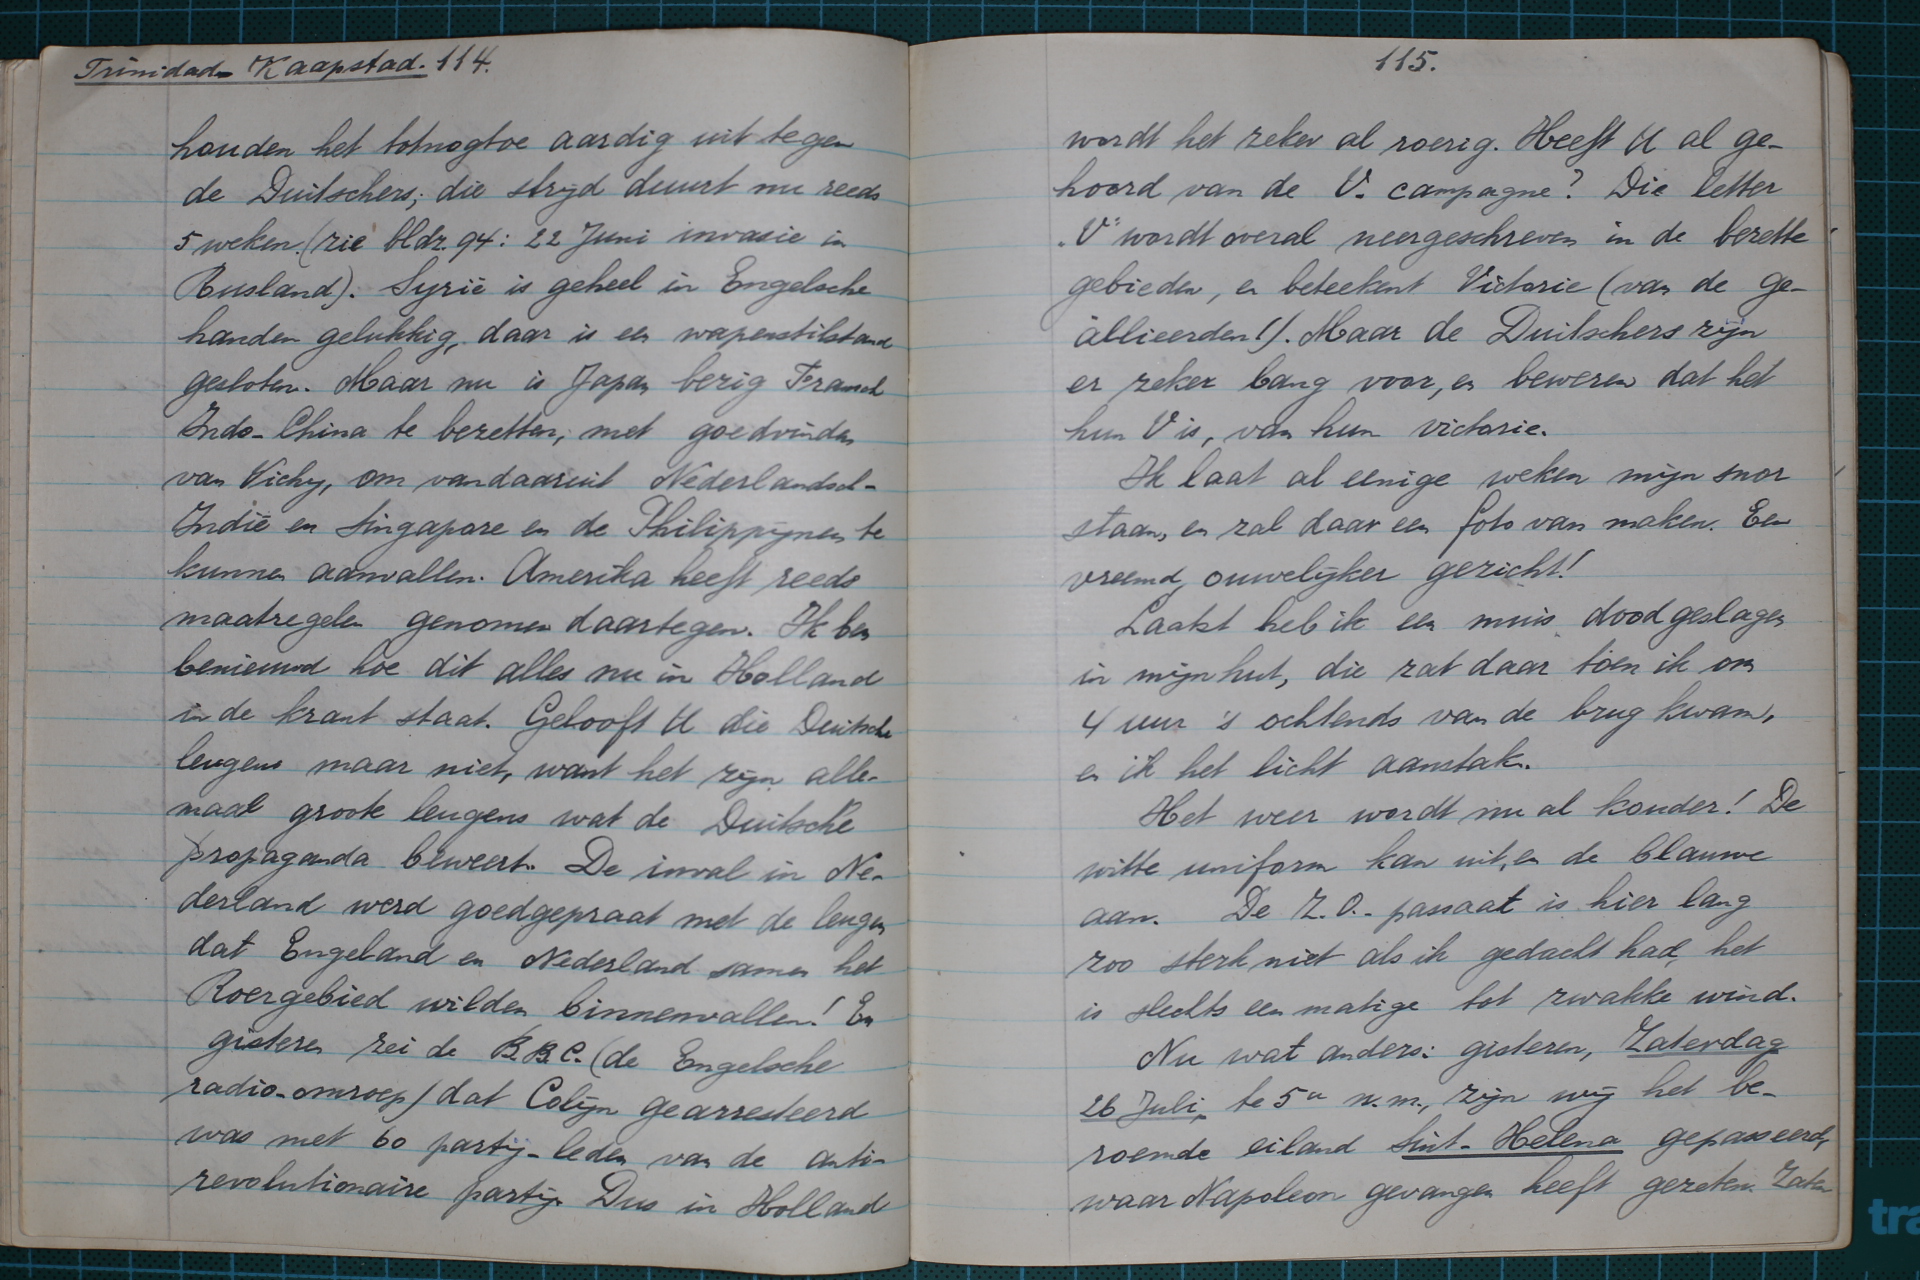 Trinidad - Kaapstad. 114.
houden het totnogtoe aardig uit tegen
de Duitschers; die strijd duurt nu reeds
5 weken (zie bldz. 94: 22 Juni invasie in
Rusland). Syrië is geheel in Engelsche
handen gelukkig, daar is een wapenstilstand
gesloten. Maar nu is Japan bezig Fransch
Indo-China te bezetten, met goedvinden
van Vichy, om vandaaruit Nederlandsch-
Indië en Singapore en de Philippijnen te
kunnen aanvallen. Amerika heeft reeds
maatregelen genomen daartegen. Ik ben
benieuwd hoe dit alles nu in Holland
in de krant staat. Gelooft U die Duitsche
leugens maar niet, want het zijn alle-
maal groote leugens wat de Duitsche
propaganda beweert. De inval in Ne-
derland werd goedgepraat met de leugen
dat Engeland en Nederland samen het
Roergebied wilden binnenvallen! En
gisteren zei de B.B.C. (de Engelsche
radio-omroep) dat Colijn gearresteerd
was met 60 partij-leden van de anti-
revolutionaire partij. Dus in Holland
115.
wordt het zeker al roerig. Heeft U al ge-
hoord van de V. campagne? Die letter
„V" wordt overal neergeschreven in de bezette
gebieden, en beteekent Victorie (van de ge-
allieerden!). Maar de Duitschers zijn
er zeker bang voor, en beweren dat het
hun V is, van hun victorie.
Ik laat al eenige weken mijn snor
staan, en zal daar een foto van maken. Een
vreemd, ouwelijker gezicht!
Laatst heb ik een muis doodgeslagen
in mijn hut, die zat daar toen ik om
4 uur 's ochtends van de brug kwam,
en ik het licht aanstak.
Het weer wordt nu al kouder! De
witte uniform kan uit, en de blauwe
aan. De Z.O.-passaat is hier lang
zoo sterk niet als ik gedacht had, het
is slechts een matige tot zwakke wind.
Nu wat anders: gisteren, Zaterdag
26 Juli, te 5u n.m., zijn wij het be-
roemde eiland Sint-Helena gepasseerd,
waar Napoleon gevangen heeft gezeten. Zater
tra